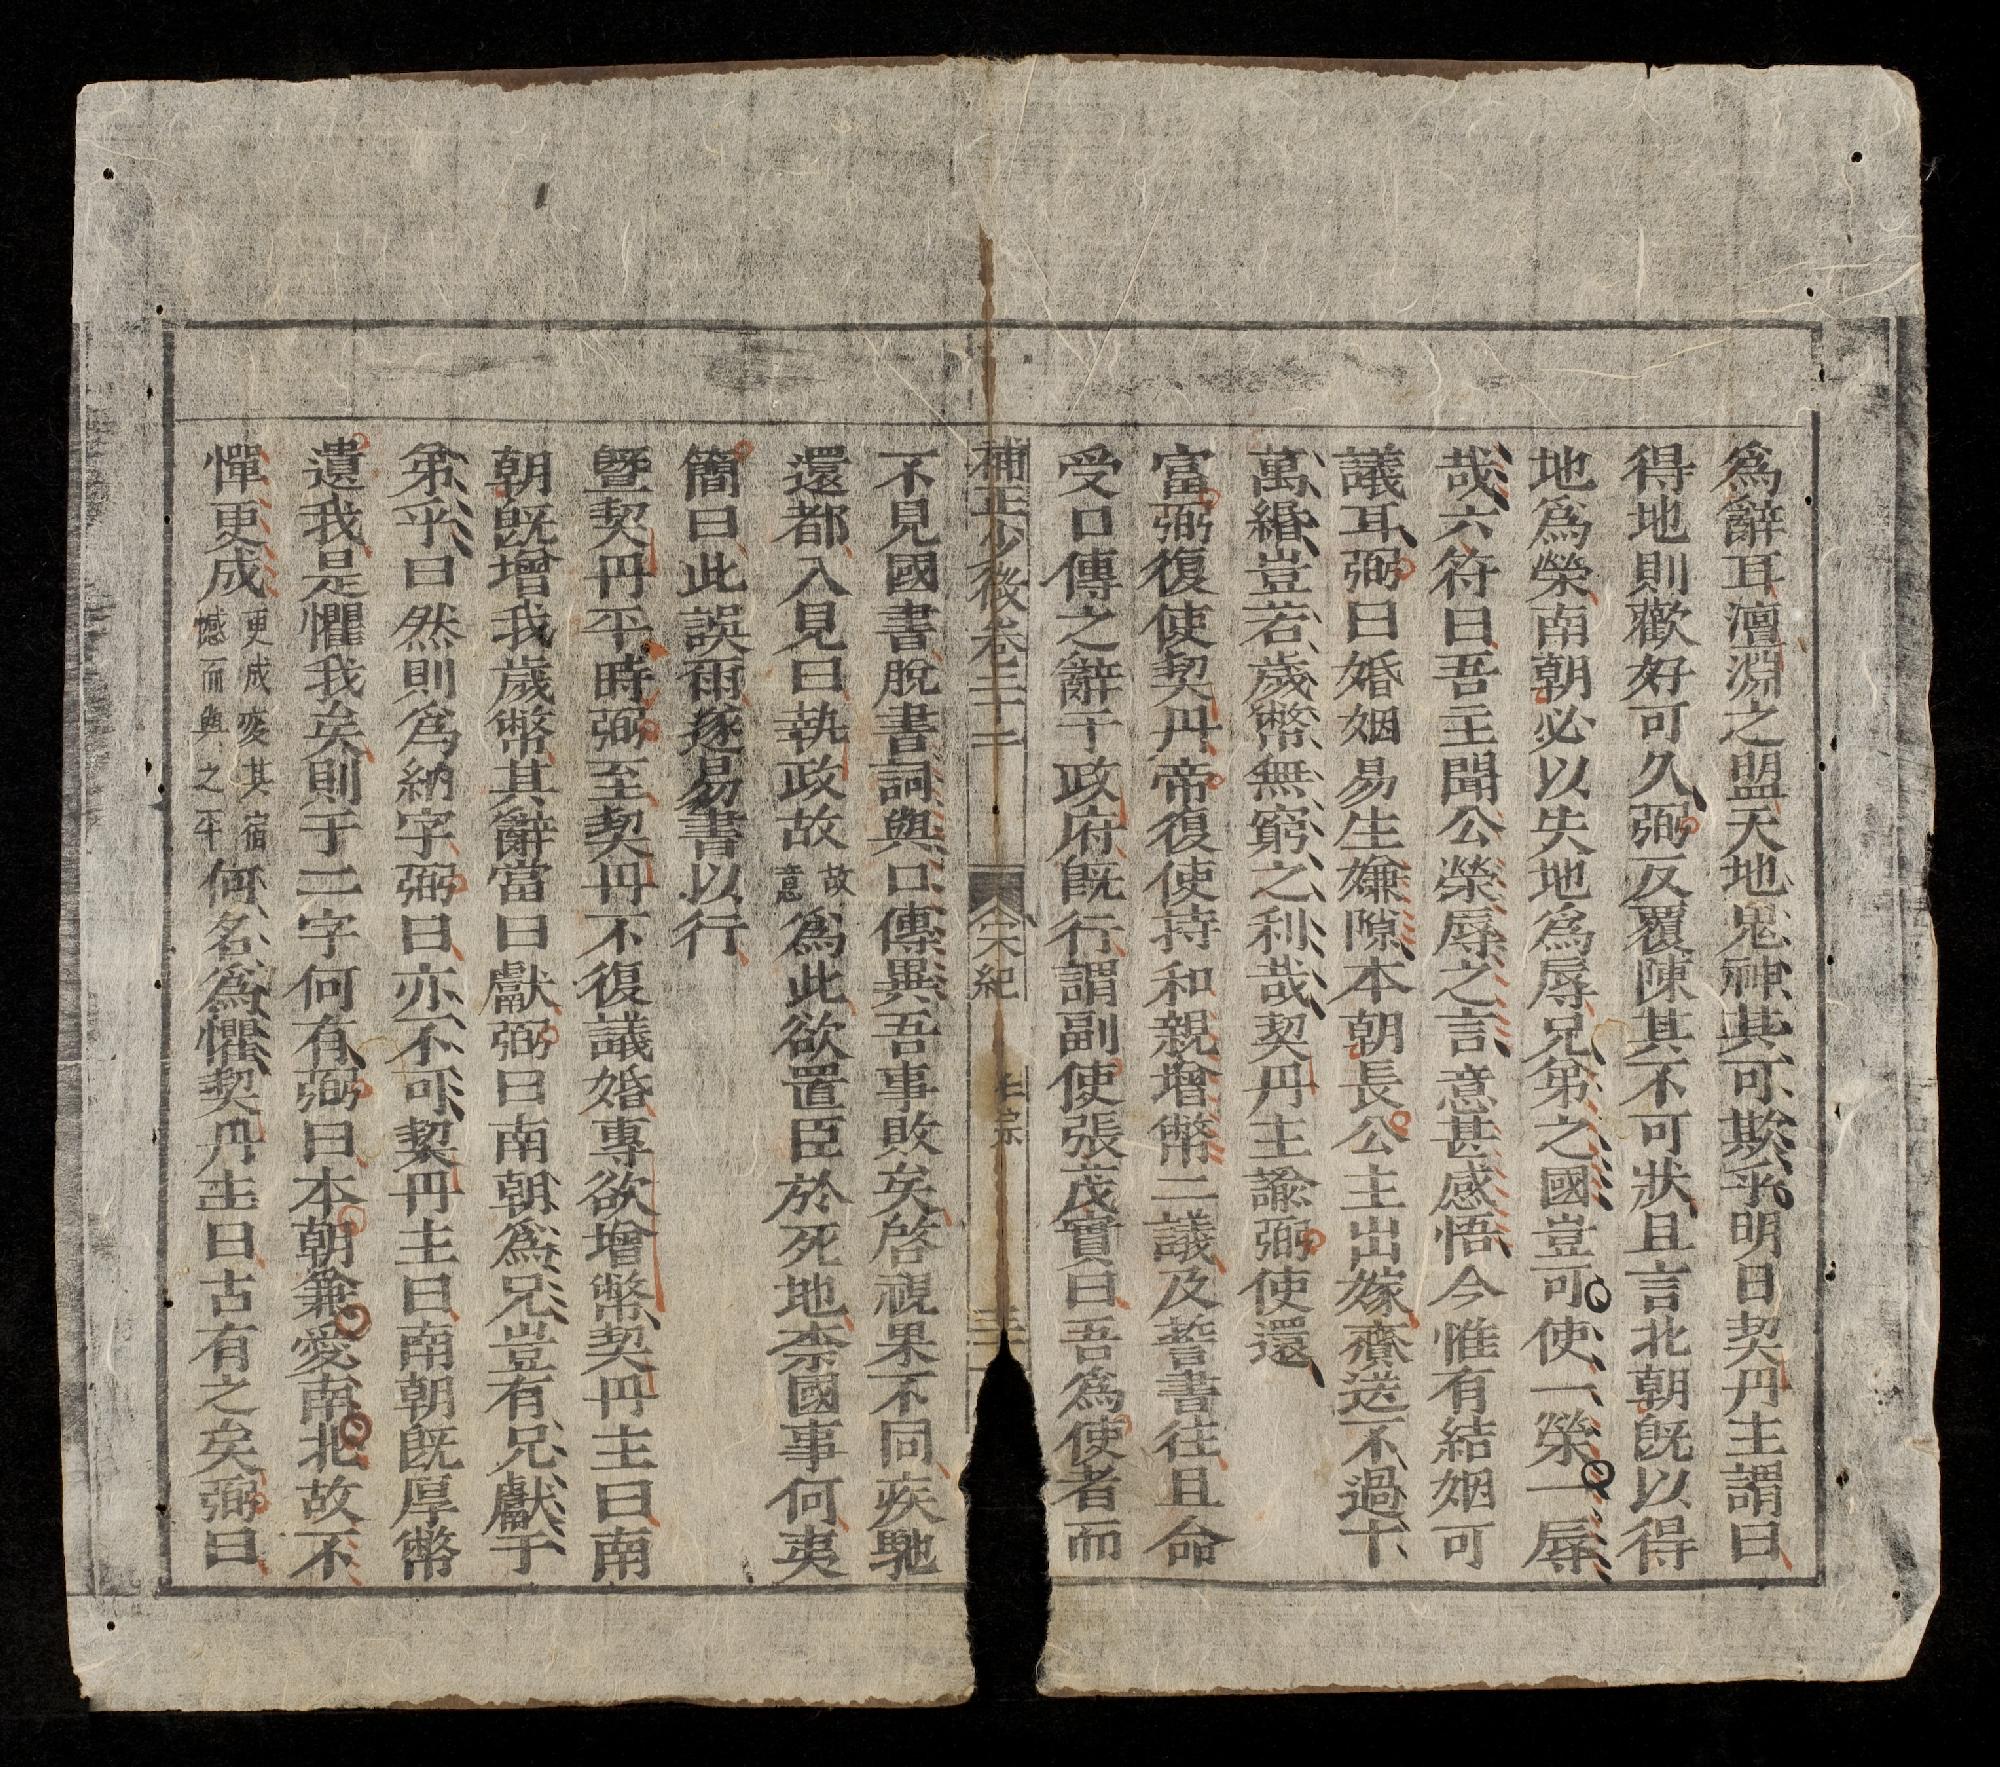 為辭耳澶淵之盟天地鬼神其可欺乎明日契丹主謂曰
得地則歡好可久弼反覆陳其不可狀且言北朝既以得
地為榮南朝必以失地為辱兄弟之國豈可使一榮一辱
哉六符曰吾主聞公榮辱之言意甚感悟今惟有結姻可
議耳弼曰婚姻易生嫌隙本朝長公主出嫁齎送不過十
萬緡豈若歲幣無窮之利哉契丹主諭弼使還
富弼復使契丹帝復使持和親增幣二議及誓書往且命
受口傳之辭于政府既行謂副使張茂實曰吾為使者而
補正少微卷三十二 宋紀 仁宗
不見國書脫書詞與口傳異吾事敗矣啓視果不同疾馳
還都入見曰執政故故意為此欲置臣於死地柰國事何夷
簡曰此誤爾遂易書以行
曁契丹平時弼至契丹不復議婚專欲增幣契丹主曰南
朝既增我歲幣其辭當曰獻弼曰南朝為兄豈有兄獻于
弟乎曰然則為納字弼曰亦不可契丹主曰南朝既厚幣
遺我是懼我矣則于二字何有弼曰本朝兼愛南北故不
憚更成更成变其宿憾而與之平何名為懼契丹主曰古有之矣弼曰